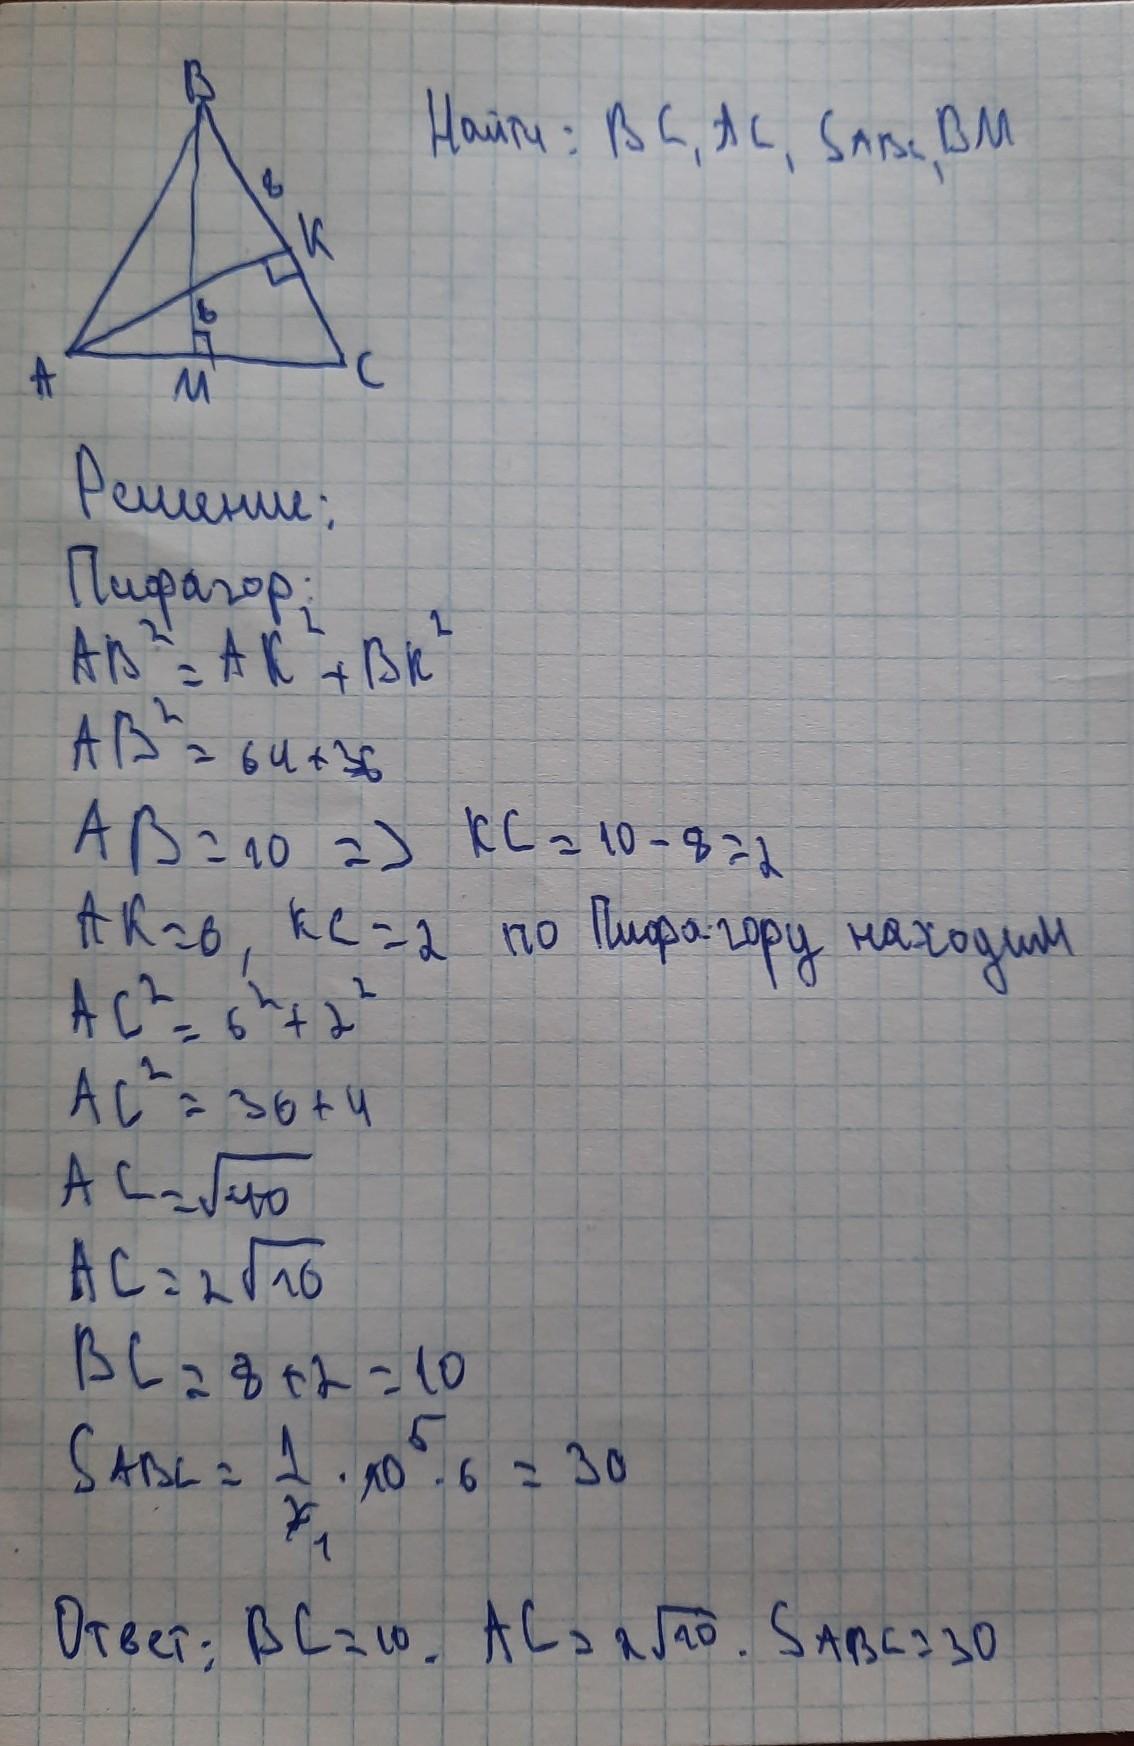 B
Найти: BC, AC, SABC, BM
8
K
6
A
M
C
Решение:
Пифагор:
AB² = AK² + BK²
AB² = 64+36
AB = 10 => KC = 10-8=2
AK=6, KC=2 по Пифагору находим
AC² = 6² + 2²
AC² = 36+4
AC = √40
AC = 2√10
BC = 8+2 = 10
SABC = 1/2 1 · 10 5 · 6 = 30
Ответ: BC=10. AC = 2√10. SABC=30